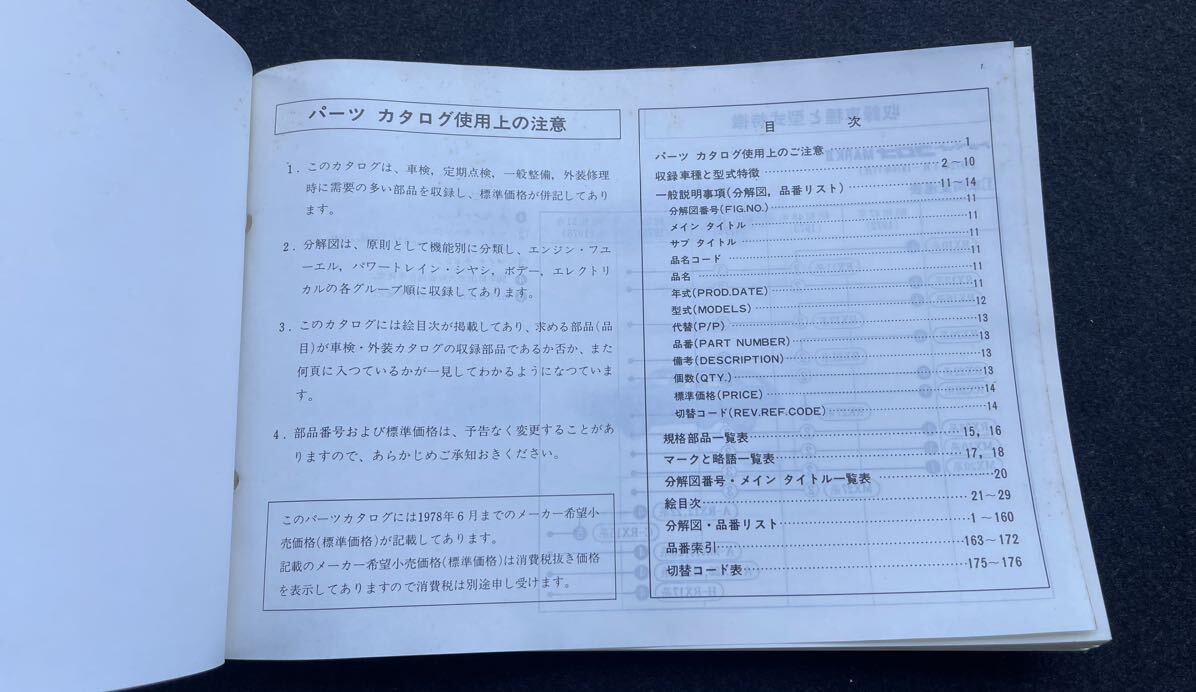 1
パーツ カタログ使用上の注意
1. このカタログは、車検，定期点検，一般整備，外装修理
時に需要の多い部品を収録し、標準価格が併記してあり
ます。
2. 分解図は、原則として機能別に分類し、エンジン・フユ
ーエル，パワートレイン・シヤシ，ボデー，エレクトリ
カルの各グループ順に収録してあります。
3. このカタログには絵目次が掲載してあり、求める部品(品
目)が車検・外装カタログの収録部品であるか否か、また
何頁に入つているかが一見してわかるようになつていま
す。
4. 部品番号および標準価格は、予告なく変更することがあ
りますので、あらかじめご承知おきください。
このパーツカタログには1978年6月までのメーカー希望小
売価格(標準価格)が記載してあります。
記載のメーカー希望小売価格(標準価格)は消費税抜き価格
を表示してありますので消費税は別途申し受けます。
目 次
パーツ カタログ使用上のご注意……1
収録車種と型式特徴……2～10
一般説明事項(分解図，品番リスト)……11～14
分解図番号(FIG.NO.)……11
メイン タイトル……11
サブ タイトル……11
品名コード……11
品名……11
年式(PROD.DATE)……11
型式(MODELS)……12
代替(P/P)……13
品番(PART NUMBER)……13
備考(DESCRIPTION)……13
個数(QTY.)……13
標準価格(PRICE)……14
切替コード(REV.REF.CODE)……14
規格部品一覧表……15，16
マークと略語一覧表……17，18
分解図番号・メイン タイトル一覧表……20
絵目次……21～29
分解図・品番リスト……1～160
品番索引……163～172
切替コード表……175～176